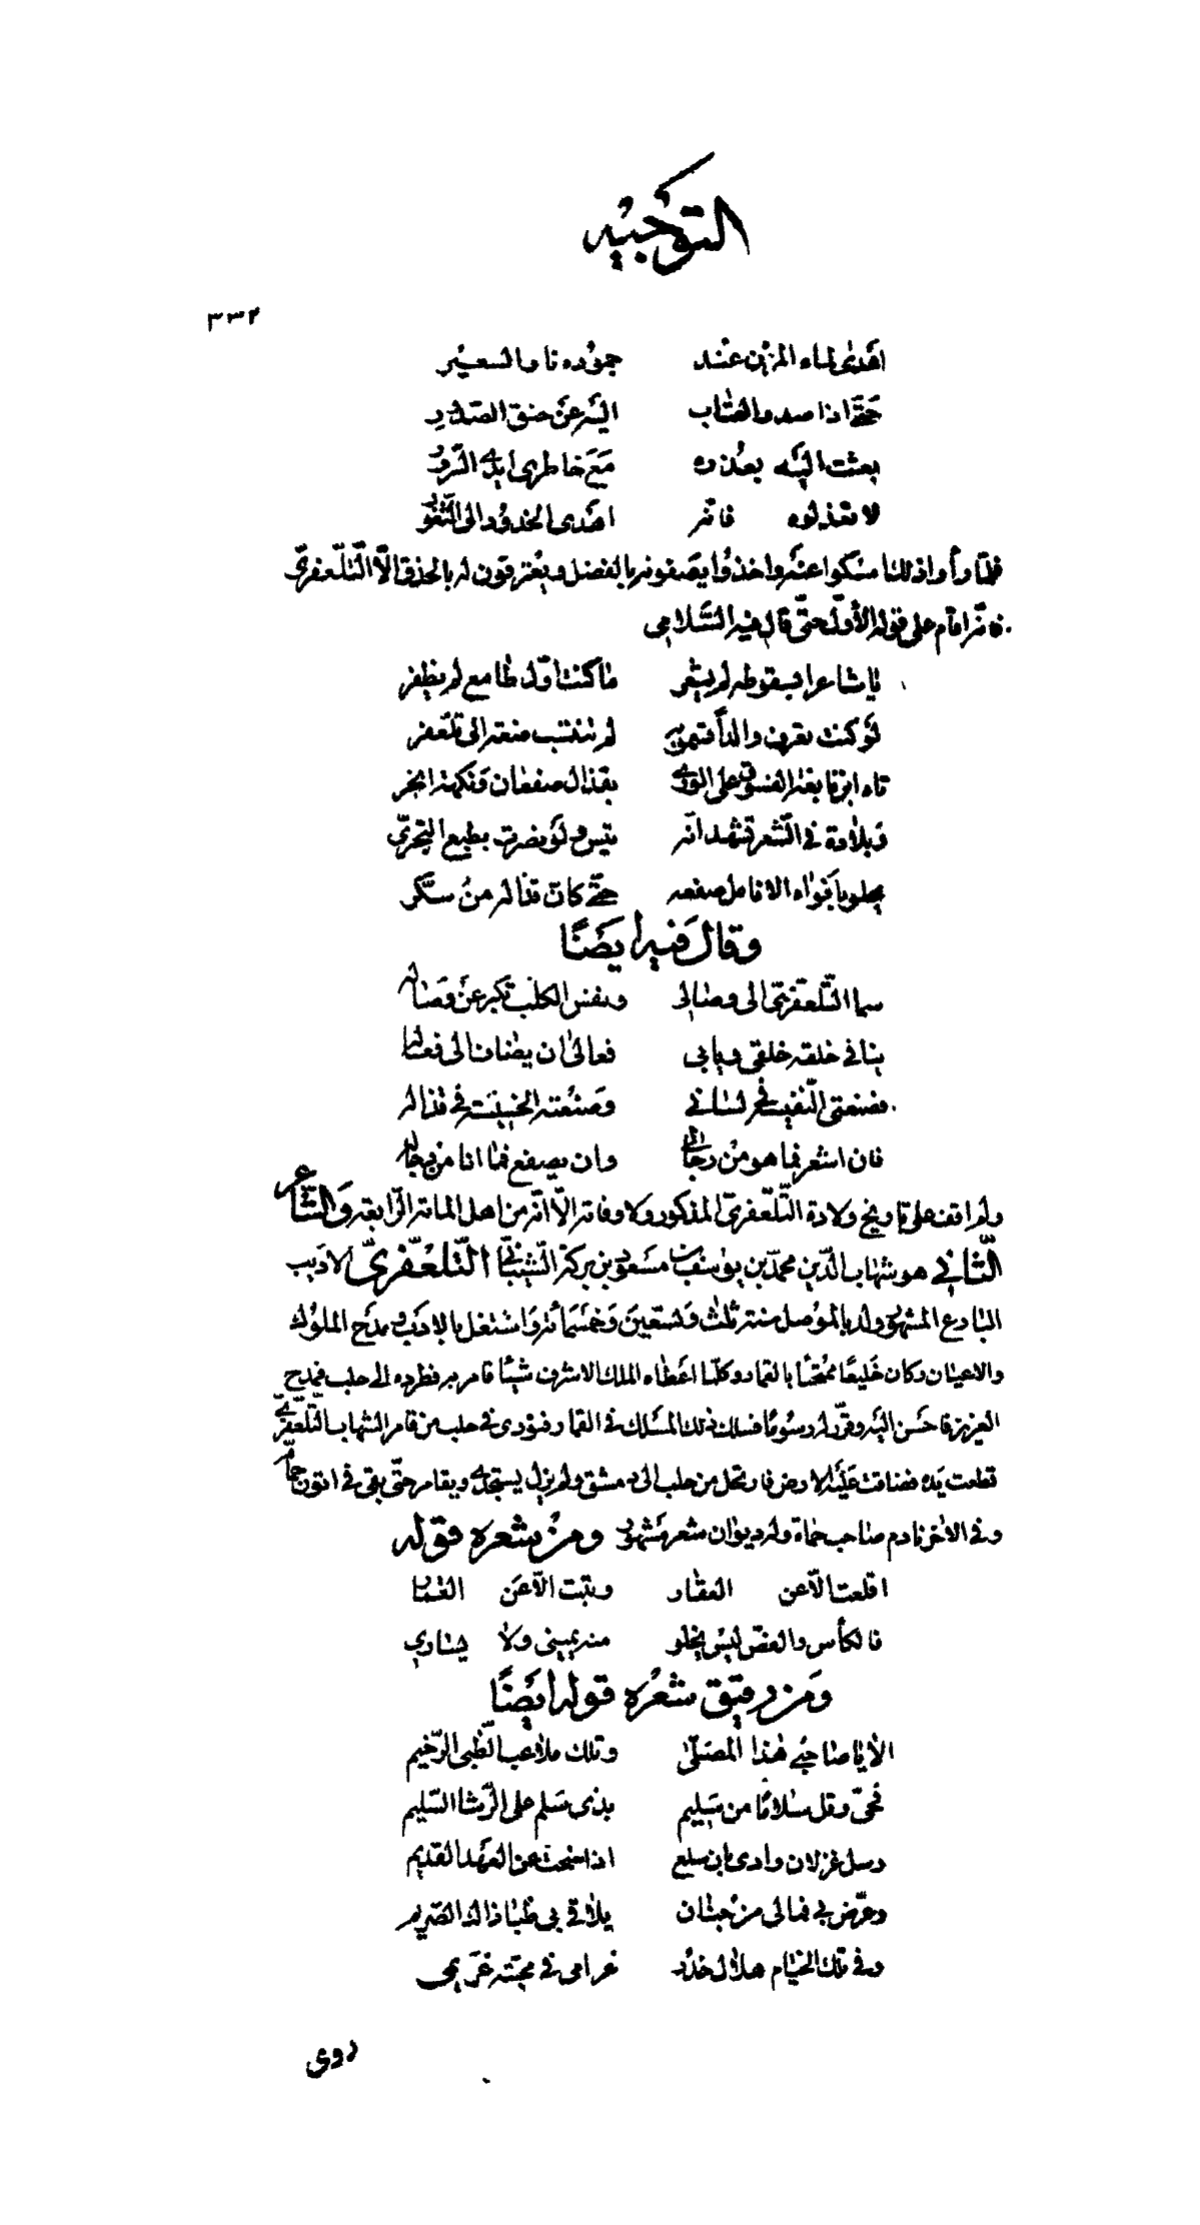 التوجيه
٣٣٢
اهدى لماء المزن عند جموده نار السعير
حتى اذا صدر العتاب اليه عن حنق الصدور
بعثت اليه بعذره مع خاطرى ايدى السرور
لا تعذلوه فانه اهدى الخدود الى الثغور
فلمّا رأوا ذلك امسكوا عنه واخذوا يصفونه بالفضل ويعترفون له بالحذق الّا التّلّعفرىّ
فانه اقام على قوله الأوّل حتّى قال فيه السّلامى
يا شاعرا بسقوطه لم يشعر ما كنت اوّل طامع لم يظفر
لو كنت تعرف والدا تسمو به لم تنتسب ضعة الى تلّعفر
تاه ابن فابغة الفسوق على الورى بقذال صفعان ونكهة ابخر
وبلادة فى الشعر تشهد انّه تيس ولو نصرت بطبع البحترىّ
يحلو بافواه الانامل صفعه حتّى كان قذاله من سكّر
وقال فيه ايضًا
سما التّلّعفرىّ الى وصالى ونفس الكلب تكبر عن وصاله
ينافى خلقه خلقى ويابى فعالى ان يضاف الى فعاله
فصنعتى النّفيسة فى لسانى وصنعته الخسيسة فى قذاله
فان اشعر فما هو من رجالى وان يصفع فما انا من رجاله
ولم اقف على تاريخ ولادة التّلّعفرىّ المذكور ولا وفاته الّا انّه من اهل المائة الرّابعة والشّاعر
الثّانى هو شهاب الدّين محمّد بن يوسف بن مسعود بن بركة الشّيبانىّ التّلّعفرىّ الاديب
البارع المشهور ولد بالموصل سنة ثلث وتسعين وخمسمائة واشتغل بالادب ومدح الملوك
والاعيان وكان خليعًا ممتحنًا بالقمار وكلّما اعطاه الملك الاشرف شيئًا قامر به فطرده الى حلب فمدح
العزيز فاحسن اليه وقرّر له رسومًا فسلك ذلك المسلك فى القمار فنودى فى حلب من قامر الشهاب التّلّعفرىّ
قطعت يده فضاقت عليه الارض فارتحل من حلب الى دمشق ولم يزل يستجدى ويقامر حتّى بقى فى اتون حمّام
وفى الآخر نادم صاحب حماة وله ديوان شعر مشهور ومن شعره قوله
اقلعت الّا عن العقار وتبت الّا عن القمار
فالكأس والفصّ ليس يخلو منه يمينى ولا يسارى
ومن رقيق شعره قوله ايضًا
الا يا صاحبى هذا المصلّى وتلك ملاعب الظّبى الرّخيم
فحىّ وقل سلامًا من سليم بذى سلم على الرّشا السّليم
وسل غزلان وادى بان سلع اذا سنحت عن العهد القديم
وعرّض بى فمالى من جنان يلاقى بى ظبا ذاك الصريم
وفى تلك الخيام هلال خدر غرامى فى محبّته غريمى
روى